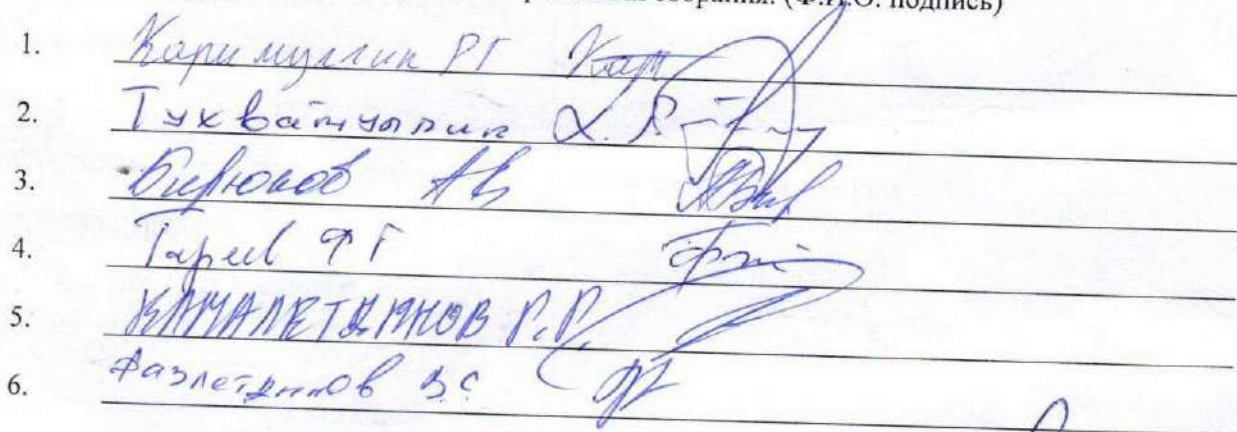 собрания. (Ф.И.О. подпись)
1. Каримуллин РГ
2. Тухватуллин
3. Бирюков АВ
4. Гареев ФГ
5. КАМАЛЕТДИНОВ Р.Р.
6. Фазлетдинов З.С